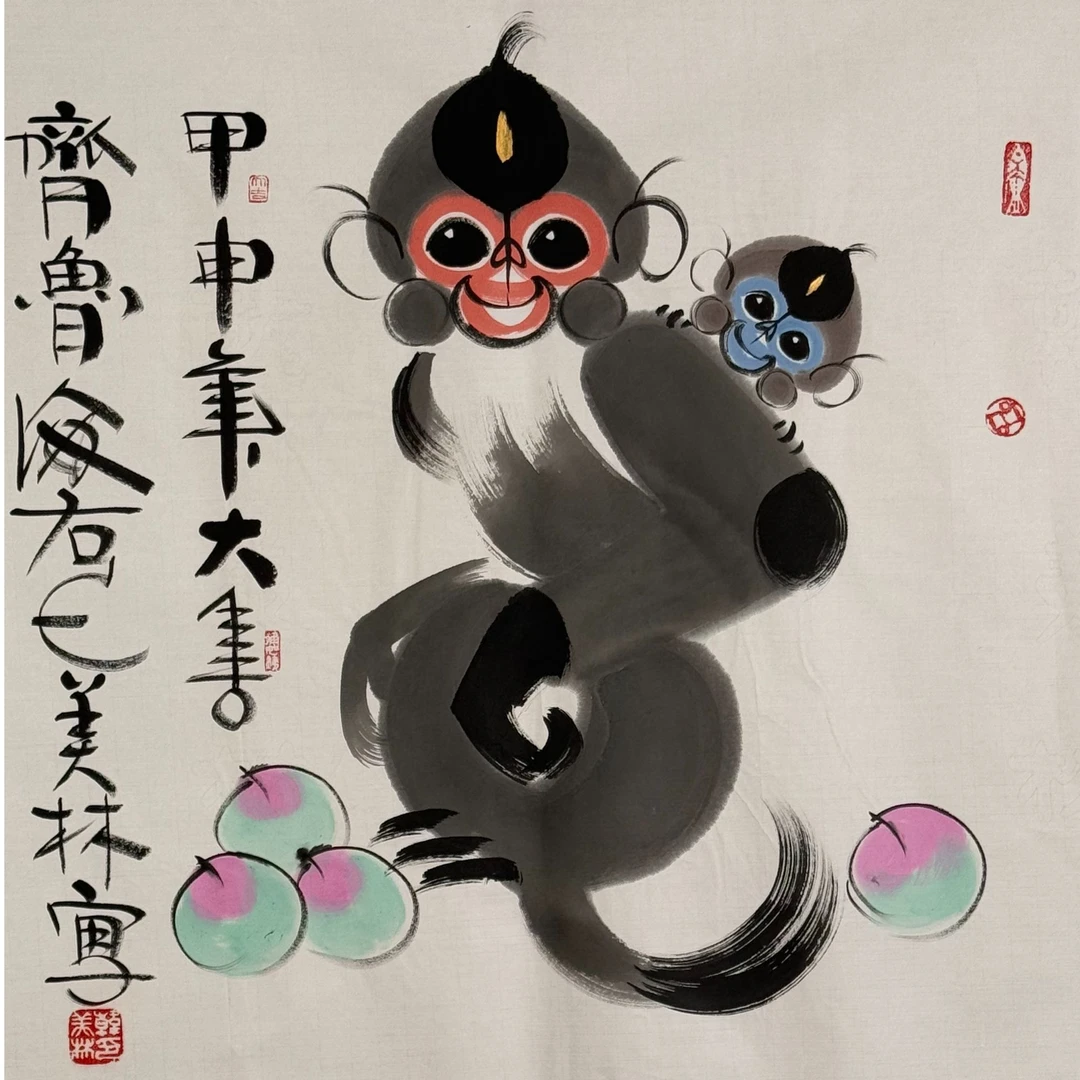 甲申年大吉
齊魯海右美林寫
韓印
美林